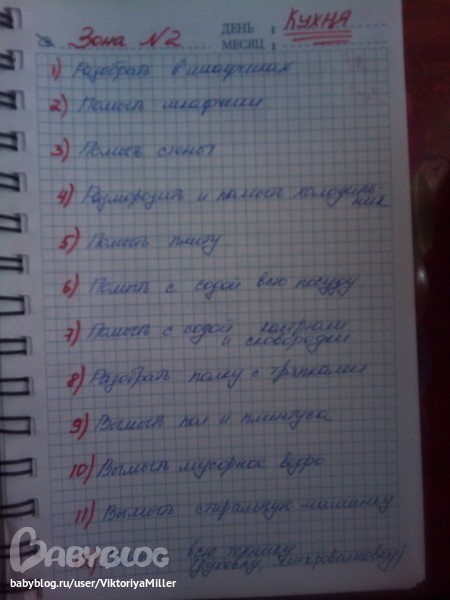 Зона №2
ДЕНЬ : Кухня
МЕСЯЦ :
1) Разобрать в шкафчиках
2) Помыть шкафчики
3) Помыть стены
4) Разморозить и помыть холодиль
ник
5) Помыть плиту
6) Помыть с содой всю посуду
7) Помыть с содой кастрюли
и сковородки
8) Разобрать полку с тряпками
9) Вымыть пол и плинтуса
10) Вымыть мусорное ведро
11) Вымыть стиральную машинку
всю технику
(духовку, микроволновку)
BABYBLOG
babyblog.ru/user/ViktoriyaMiller